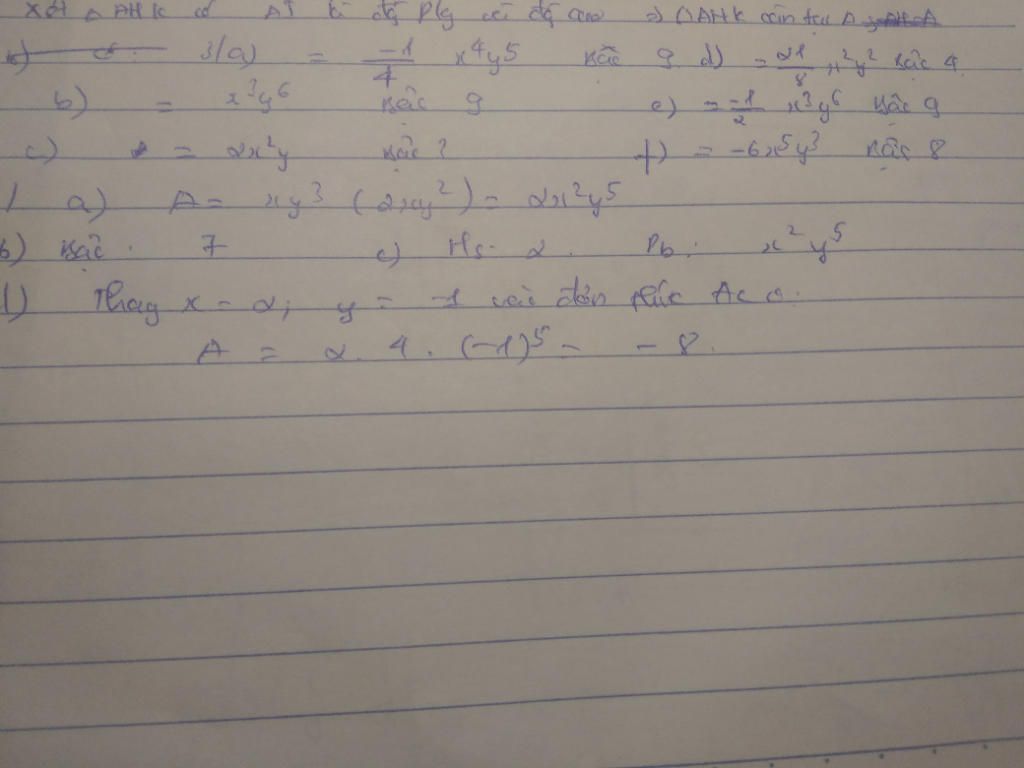 Xét △AHK có AI là đg p/g và đg cao ⇒ △AHK cân tại A
3/a) = -1/4 x⁴y⁵ bậc 9 d) = 21/8 x²y² bậc 4
b) = x³y⁶ bậc 9 e) = -1/2 x³y⁶ bậc 9
c) = 2x²y bậc 3 f) = -6x⁵y³ bậc 8
a) A = xy³ (2xy²) = 2x²y⁵
b) bậc: 7 c) Hs: 2. Pb: x²y⁵
d) Thay x = 2; y = -1 vào đơn thức A có:
A = 2.4.(-1)⁵ = -8.